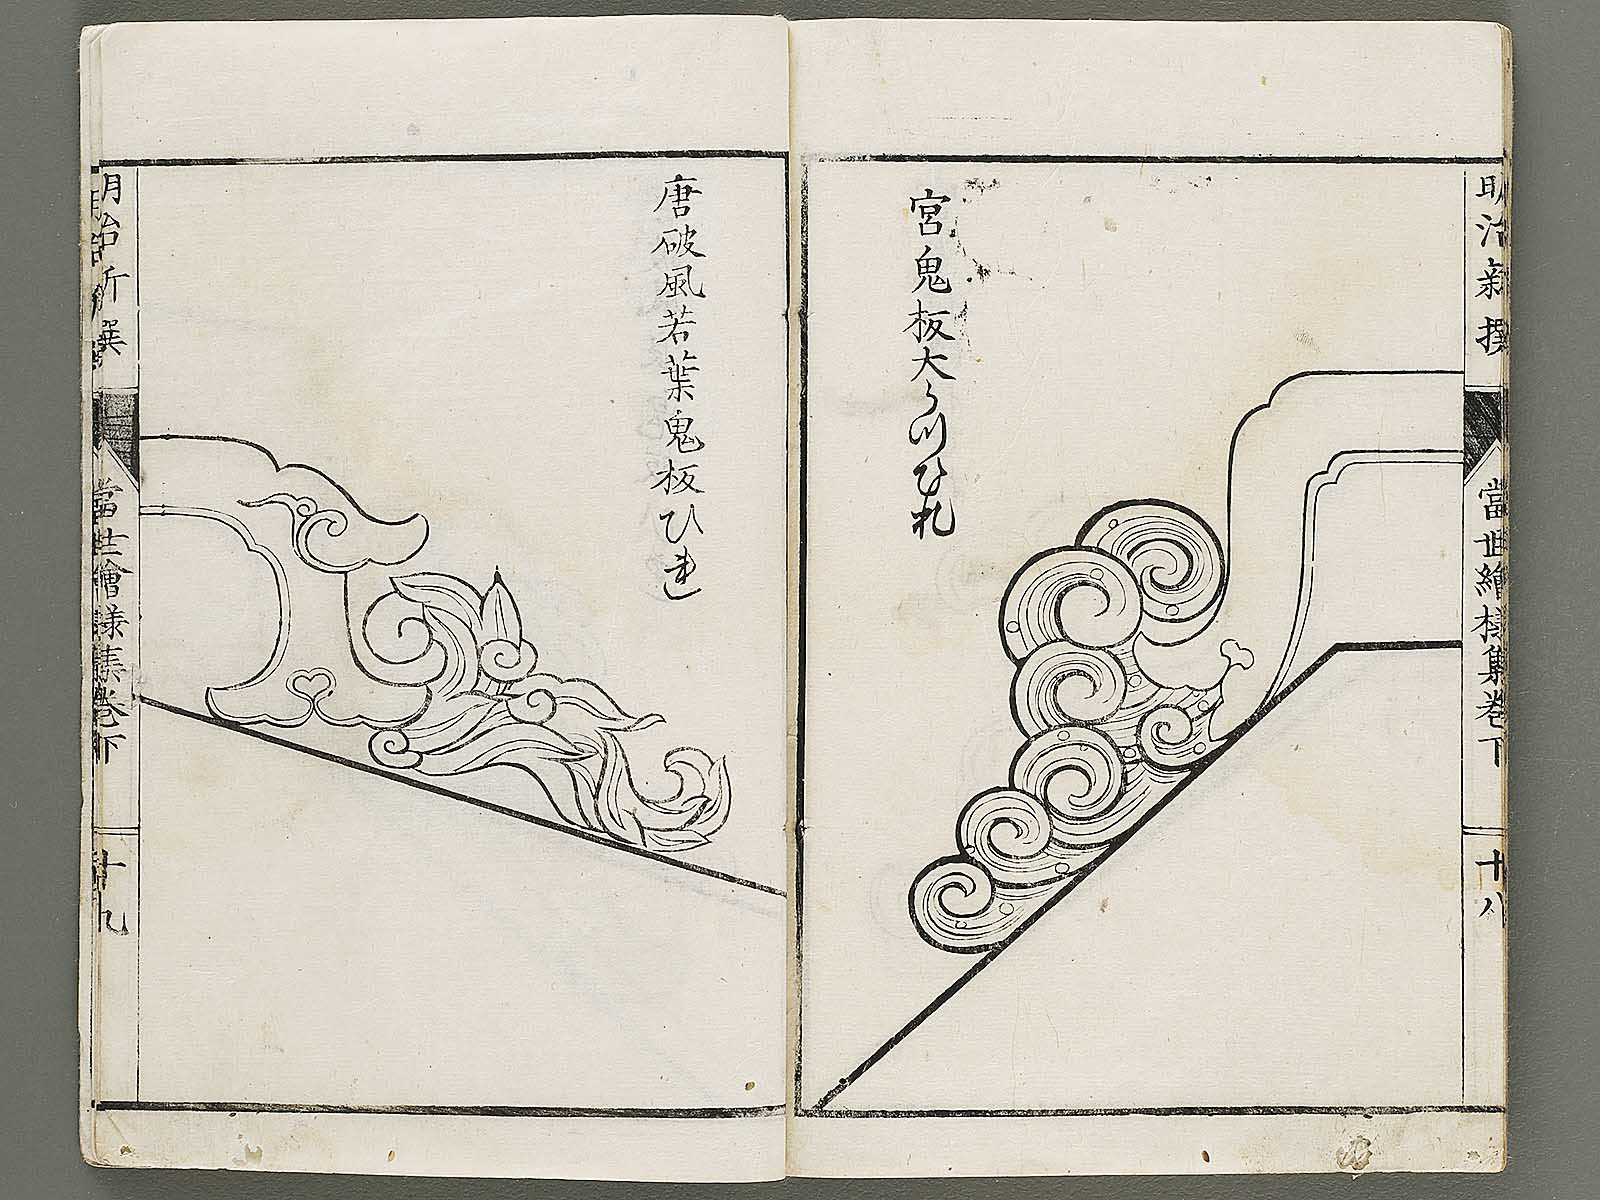 明治新撰
當世繪様集巻下
十八
宮鬼板大うづひれ
唐破風若葉鬼板ひれ
明治新撰
當世繪様集巻下
十九